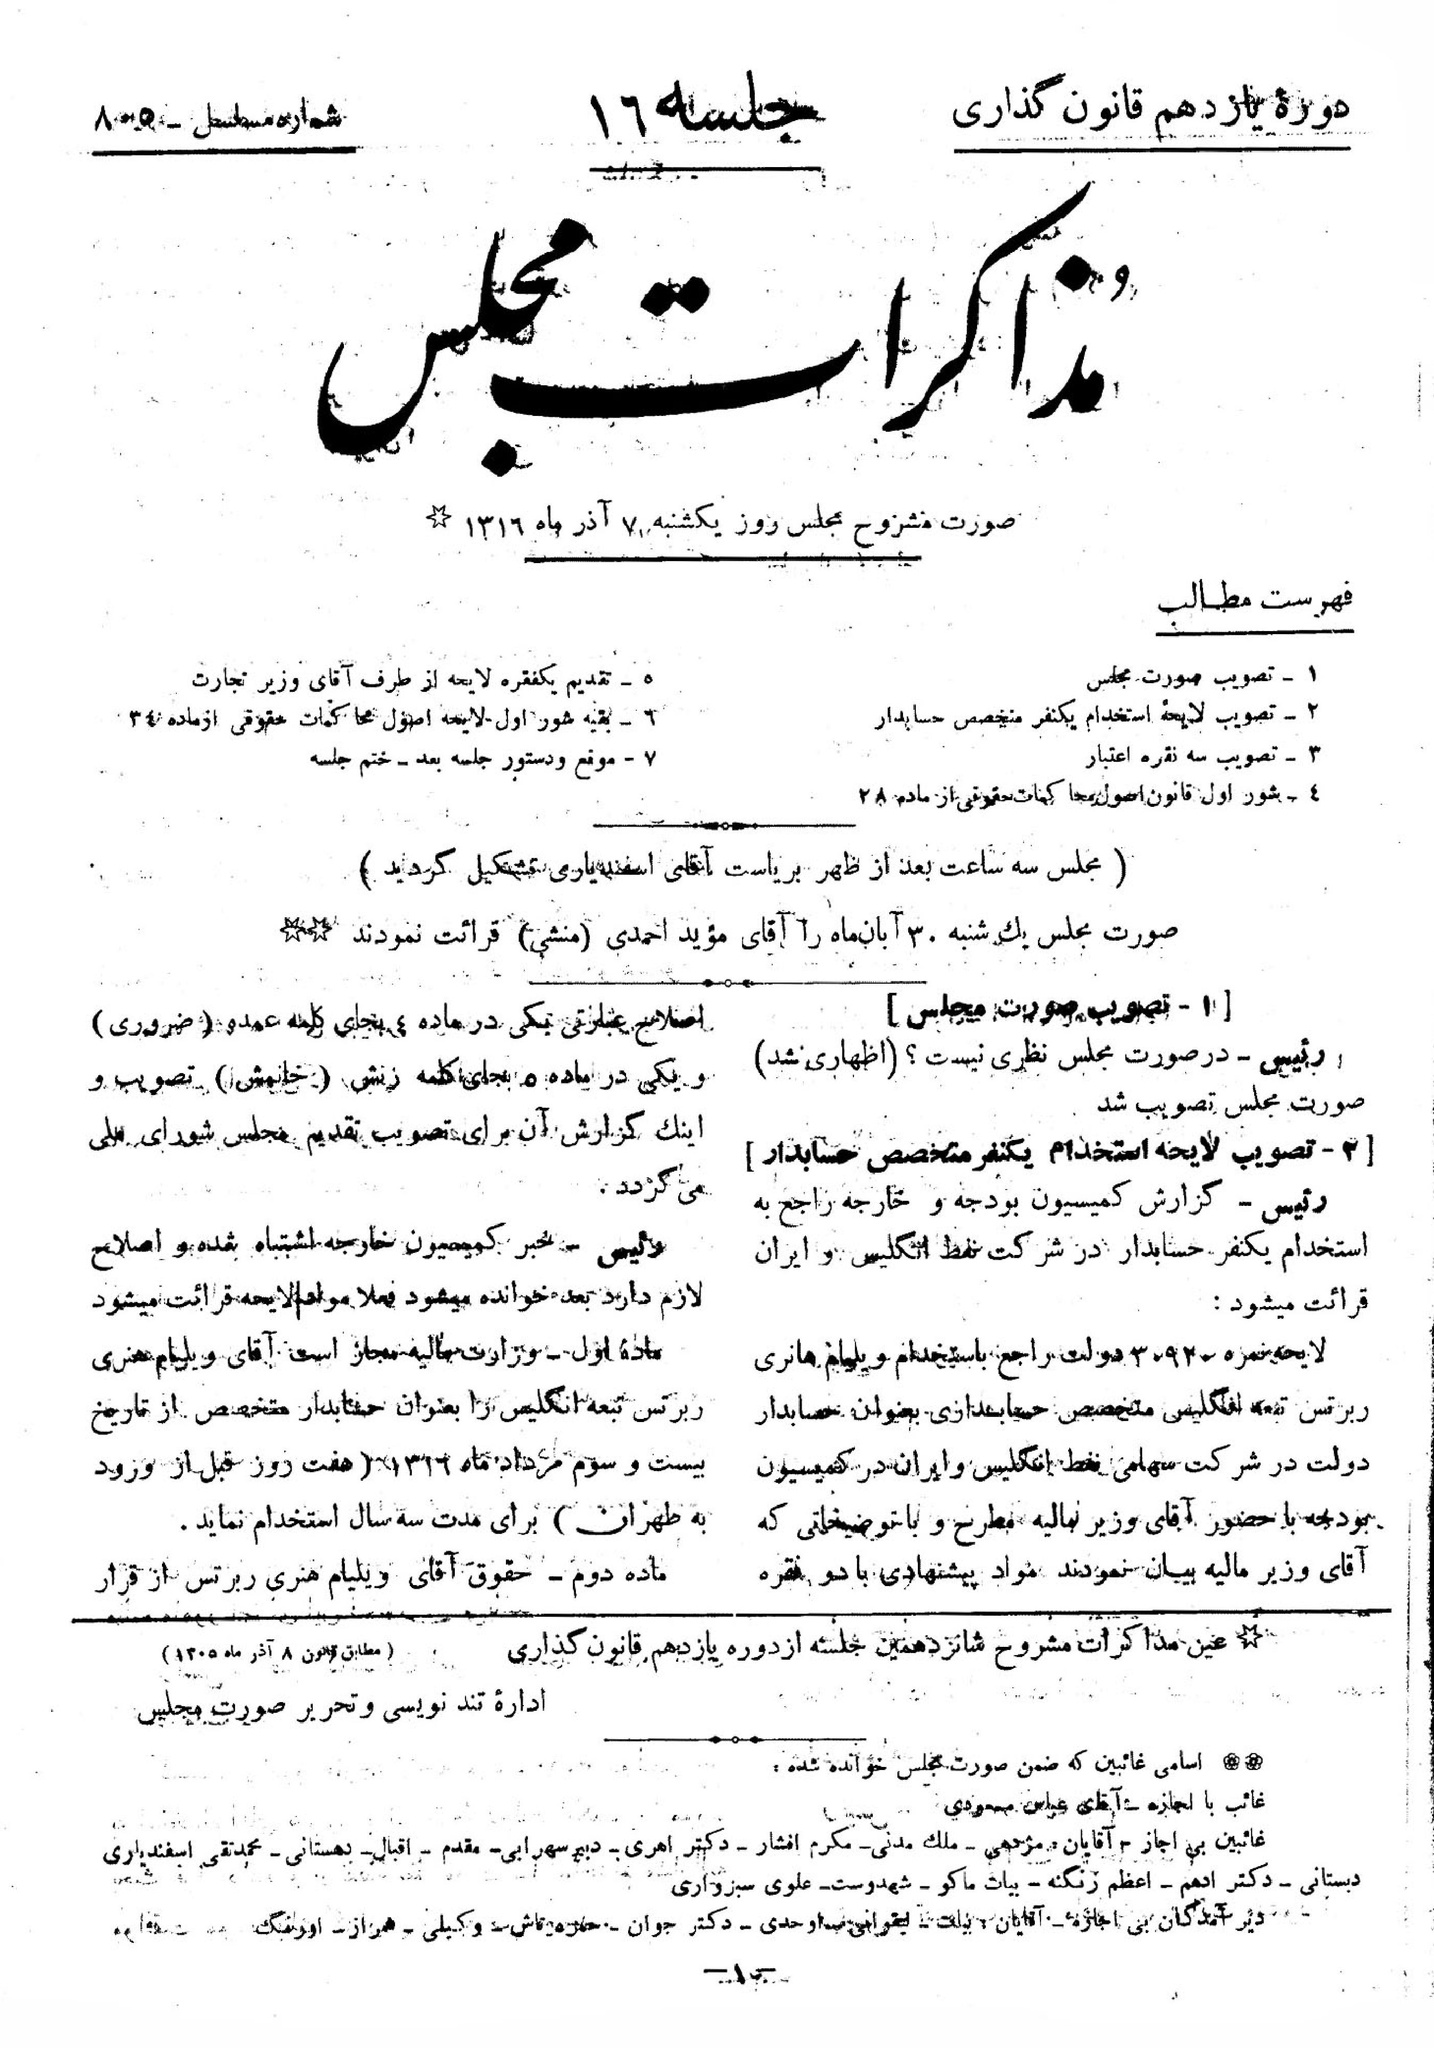 دورهٔ یازدهم قانون گذاری
جلسه ۱٦
شماره مسلسل ـ ۸۰۵
مذاکرات مجلس
صورت مشروح مجلس روز یکشنبه ۷ آذر ماه ۱۳۱٦ ☆
فهرست مطالب
۱ ـ تصویب صورت مجلس
۲ ـ تصویب لایحهٔ استخدام یکنفر متخصص حسابدار
۳ ـ تصویب سه فقره اعتبار
٤ ـ شور اول قانون اصول محاکمات حقوقی از ماده ۲۸
۵ ـ تقدیم یکفقره لایحه از طرف آقای وزیر تجارت
٦ ـ بقیه شور اول لایحه اصول محاکمات حقوقی از ماده ۳٤
۷ - موقع و دستور جلسه بعد ـ ختم جلسه
( مجلس سه ساعت بعد از ظهر بریاست آقای اسفندیاری تشکیل گردید )
صورت مجلس یك شنبه ۳۰ آبان‌ماه را آقای مؤید احمدی (منشی) قرائت نمودند ☆☆
[ ۱ - تصویب صورت مجلس ]
رئیس ـ در صورت مجلس نظری نیست ؟ (اظهاری نشد)
صورت مجلس تصویب شد
[ ۲ - تصویب لایحه استخدام یکنفر متخصص حسابدار ]
رئیس ـ گزارش کمیسیون بودجه و خارجه راجع به
استخدام یکنفر حسابدار در شرکت نفط انگلیس و ایران
قرائت میشود :
لایحه نمره ۳۰۹۲۰ دولت راجع باستخدام ویلیام هانری
ربرتس تبعه انگلیس متخصص حسابداری بعنوان حسابدار
دولت در شرکت سهامی نفط انگلیس و ایران در کمیسیون
بودجه با حضور آقای وزیر مالیه مطرح و با توضیحاتی که
آقای وزیر مالیه بیان نمودند مواد پیشنهادی با دو فقره
اصلاح عبارتی یکی در ماده ٤ بجای کلمه عمده ( ضروری )
و یکی در ماده ۵ بجای کلمه زنش ( خانمش ) تصویب و
اینك گزارش آن برای تصویب تقدیم مجلس شورای ملی
می گردد .
رئیس ـ خبر کمیسیون خارجه اشتباه شده و اصلاح
لازم دارد بعد خوانده میشود فعلا مواد لایحه قرائت میشود
مادهٔ اول ـ وزارت مالیه مجاز است آقای ویلیام هنری
ربرتس تبعه انگلیس را بعنوان حسابدار متخصص از تاریخ
بیست و سوم مرداد ماه ۱۳۱٦ ( هفت روز قبل از ورود
به طهران ) برای مدت سه سال استخدام نماید .
ماده دوم ـ حقوق آقای ویلیام هنری ربرتس از قرار
☆ عین مذاکرات مشروح شانزدهمین جلسه از دوره یازدهم قانون گذاری
( مطابق قانون ۸ آذر ماه ۱۳۰۵ )
ادارهٔ تند نویسی و تحریر صورت مجلس
❀❀ اسامی غائبین که ضمن صورت مجلس خوانده شده :
غائب با اجازه ـ آقای عباس مسعودی
غائبین بی اجاز - آقایان : مؤدهی ـ ملك مدنی ـ مکرم افشار ـ دکتر اهری ـ دبیر سهرابی ـ مقدم ـ اقبال ـ دهستانی ـ محمد تقی اسفندیاری
دبستانی ـ دکتر ادهم ـ اعظم زنگنه ـ بیات ماکو ـ شهدوست ـ علوی سبزواری
دیر آمدگان بی اجازه ـ آقایان : بیات ـ لیقوانی ـ اوحدی ـ دکتر جوان ـ حمزه تاش ـ وکیلی ـ همراز ـ اورنگ
ـ۱ـ